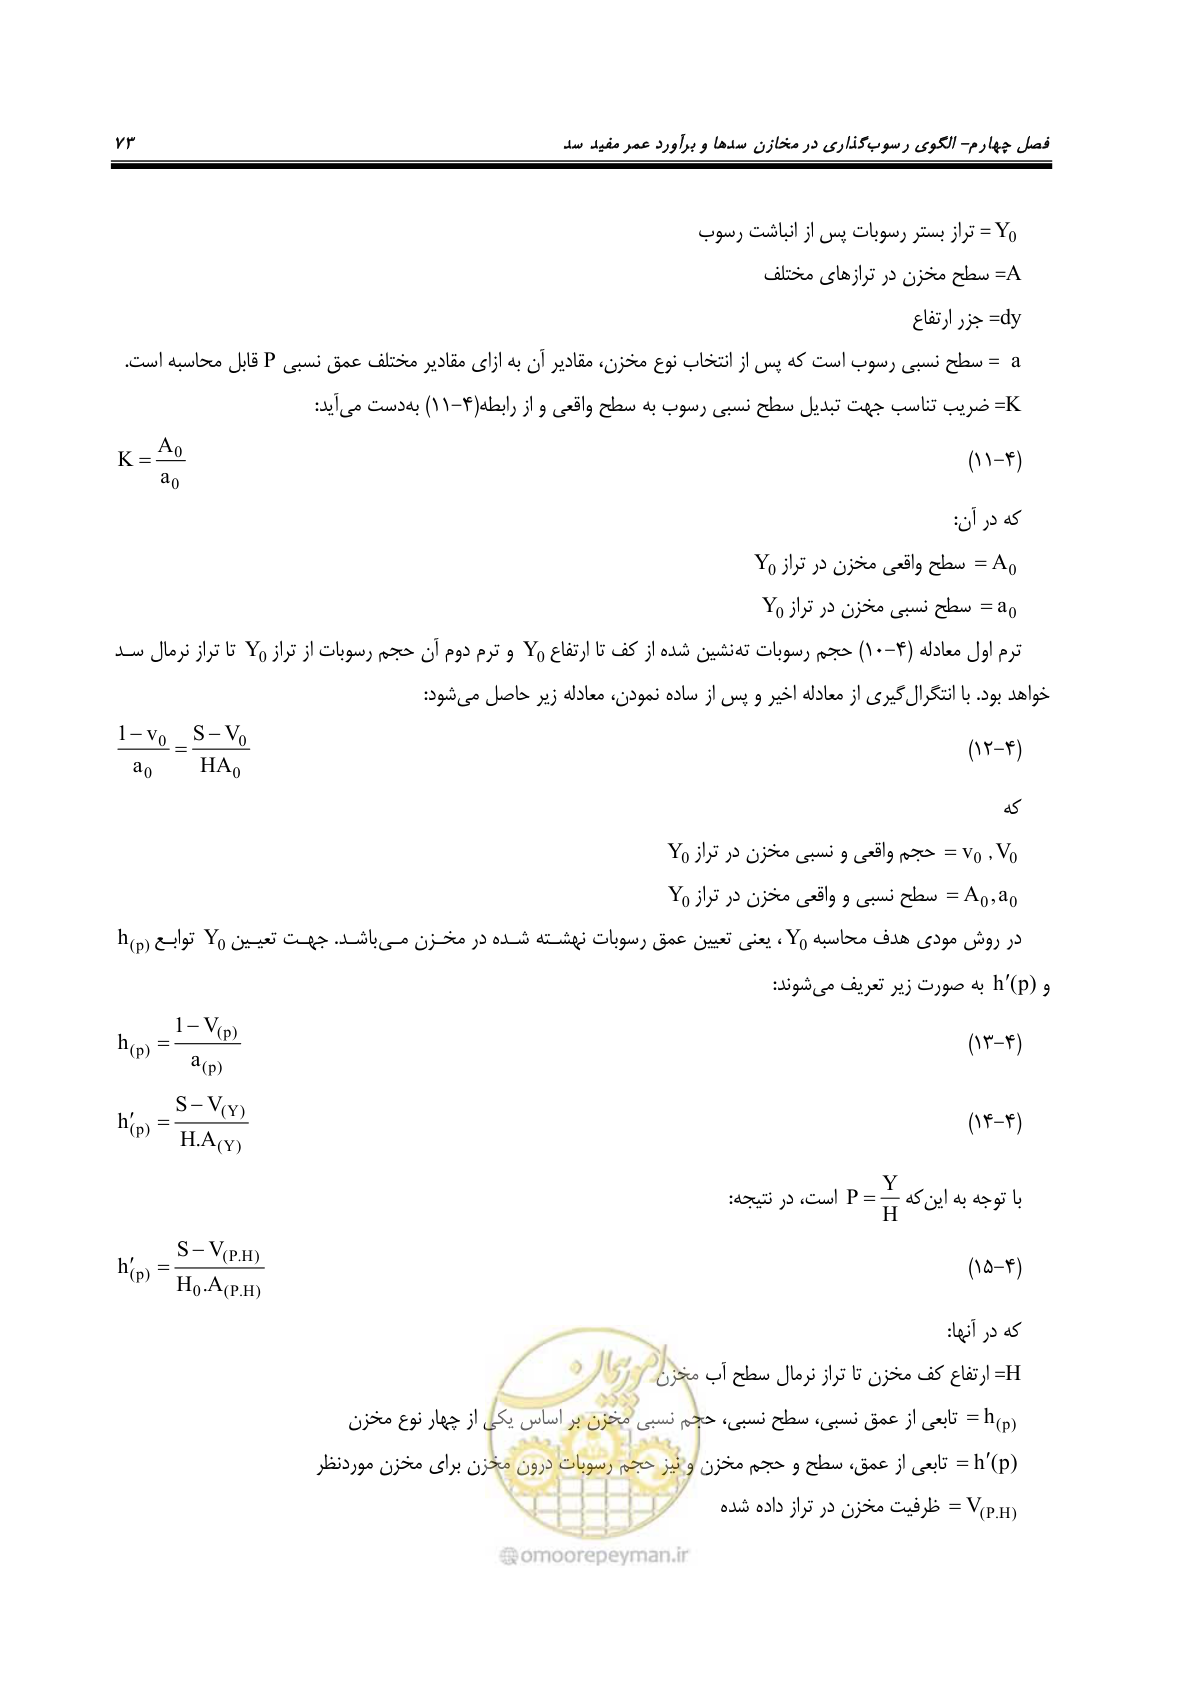 فصل چهارم– الگوی رسوب‌گذاری در مخازن سدها و برآورد عمر مفید سد ۷۳
Y0 = تراز بستر رسوبات پس از انباشت رسوب
A= سطح مخزن در ترازهای مختلف
dy= جزر ارتفاع
a = سطح نسبی رسوب است که پس از انتخاب نوع مخزن، مقادیر آن به ازای مقادیر مختلف عمق نسبی P قابل محاسبه است.
K= ضریب تناسب جهت تبدیل سطح نسبی رسوب به سطح واقعی و از رابطه(۴–۱۱) به‌دست می‌آید:
K = A0 / a0 (۴–۱۱)
که در آن:
A0 = سطح واقعی مخزن در تراز Y0
a0 = سطح نسبی مخزن در تراز Y0
ترم اول معادله (۴–۱۰) حجم رسوبات ته‌نشین شده از کف تا ارتفاع Y0 و ترم دوم آن حجم رسوبات از تراز Y0 تا تراز نرمال سد
خواهد بود. با انتگرال‌گیری از معادله اخیر و پس از ساده نمودن، معادله زیر حاصل می‌شود:
(1 – v0) / a0 = (S – V0) / HA0 (۴–۱۲)
که
v0 , V0 = حجم واقعی و نسبی مخزن در تراز Y0
A0,a0 = سطح نسبی و واقعی مخزن در تراز Y0
در روش مودی هدف محاسبه Y0 ، یعنی تعیین عمق رسوبات نهشته شده در مخزن می‌باشد. جهت تعیین Y0 توابع h(p)
و h′(p) به صورت زیر تعریف می‌شوند:
h(p) = (1 – V(p)) / a(p) (۴–۱۳)
h′(p) = (S – V(Y)) / H.A(Y) (۴–۱۴)
با توجه به این‌که P = Y / H است، در نتیجه:
h′(p) = (S – V(P.H)) / H0.A(P.H) (۴–۱۵)
که در آنها:
H= ارتفاع کف مخزن تا تراز نرمال سطح آب مخزن
h(p) = تابعی از عمق نسبی، سطح نسبی، حجم نسبی مخزن بر اساس یکی از چهار نوع مخزن
h′(p) = تابعی از عمق، سطح و حجم مخزن و نیز حجم رسوبات درون مخزن برای مخزن موردنظر
V(P.H) = ظرفیت مخزن در تراز داده شده
امور پیمان
@omoorepeyman.ir